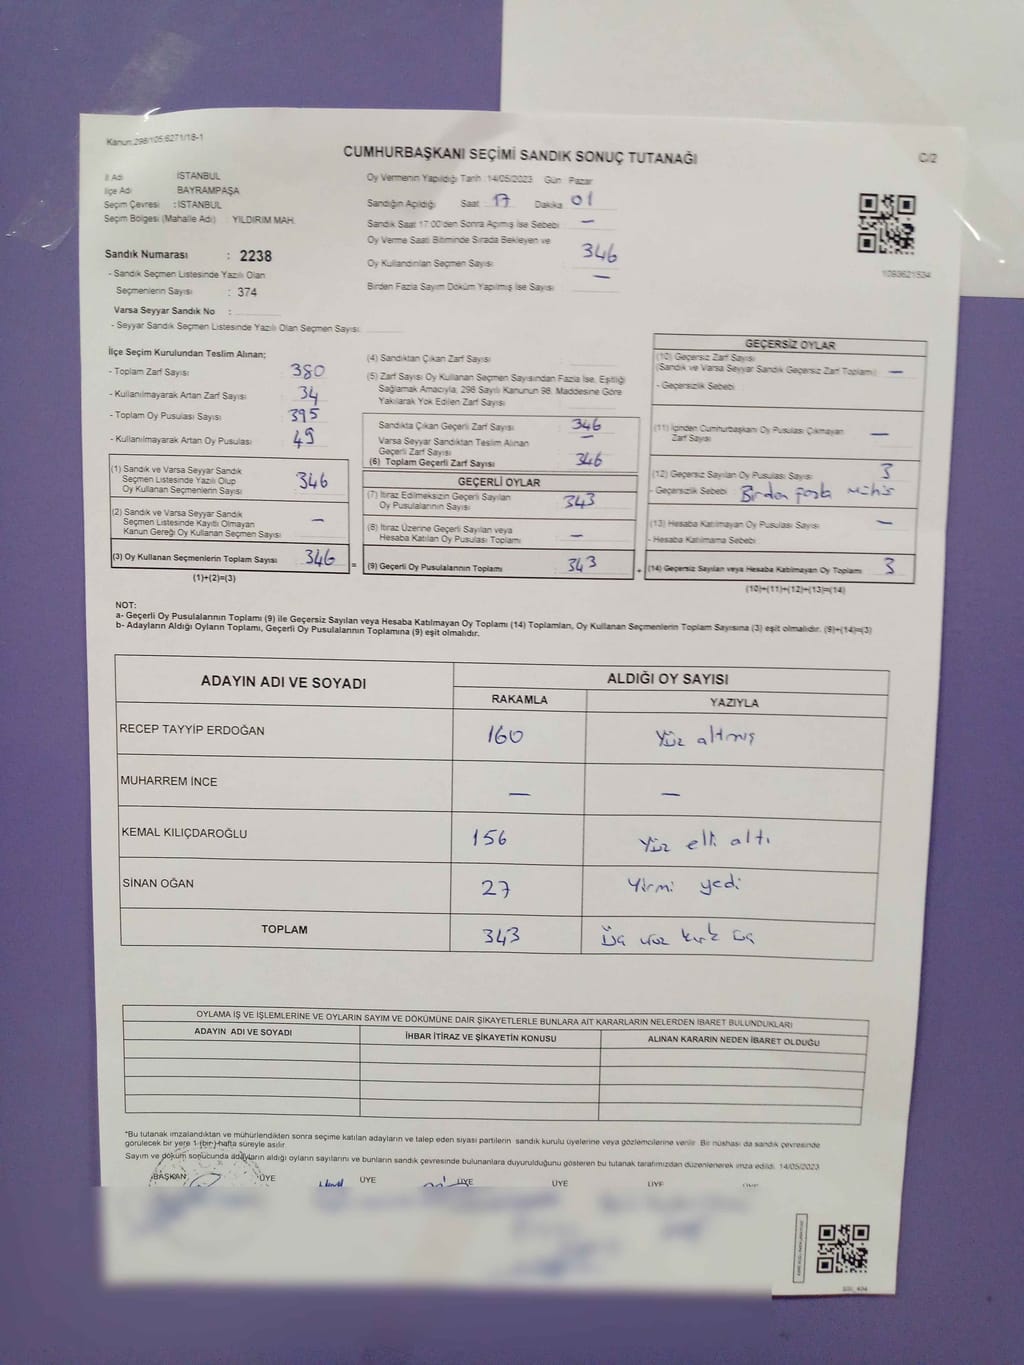 Kanun:298/105;6271/18-1
CUMHURBAŞKANI SEÇİMİ SANDIK SONUÇ TUTANAĞI
C/2
İl Adı İSTANBUL
İlçe Adı BAYRAMPAŞA
Seçim Çevresi : İSTANBUL
Seçim Bölgesi (Mahalle Adı) : YILDIRIM MAH.
Sandık Numarası : 2238
- Sandık Seçmen Listesinde Yazılı Olan
Seçmenlerin Sayısı : 374
Varsa Seyyar Sandık No :
- Seyyar Sandık Seçmen Listesinde Yazılı Olan Seçmen Sayısı:
Oy Vermenin Yapıldığı Tarih :14/05/2023 Gün: Pazar
Sandığın Açıldığı Saat 17 Dakika 01
Sandık Saat 17:00'den Sonra Açılmış İse Sebebi: —
Oy Verme Saati Bitiminde Sırada Bekleyen ve
Oy Kullandırılan Seçmen Sayısı 346
Birden Fazla Sayım Döküm Yapılmış İse Sayısı: —
1093621534
İlçe Seçim Kurulundan Teslim Alınan;
- Toplam Zarf Sayısı: 380
- Kullanılmayarak Artan Zarf Sayısı: 34
- Toplam Oy Pusulası Sayısı: 395
- Kullanılmayarak Artan Oy Pusulası: 49
(1) Sandık ve Varsa Seyyar Sandık
Seçmen Listesinde Yazılı Olup
Oy Kullanan Seçmenlerin Sayısı 346
(2) Sandık ve Varsa Seyyar Sandık
Seçmen Listesinde Kayıtlı Olmayan
Kanun Gereği Oy Kullanan Seçmen Sayısı —
(3) Oy Kullanan Seçmenlerin Toplam Sayısı 346 =
(1)+(2)=(3)
(4) Sandıktan Çıkan Zarf Sayısı
(5) Zarf Sayısı Oy Kullanan Seçmen Sayısından Fazla İse, Eşitliği
Sağlamak Amacıyla, 298 Sayılı Kanunun 98. Maddesine Göre
Yakılarak Yok Edilen Zarf Sayısı
Sandıkta Çıkan Geçerli Zarf Sayısı 346
Varsa Seyyar Sandıktan Teslim Alınan
Geçerli Zarf Sayısı —
(6) Toplam Geçerli Zarf Sayısı 346
GEÇERLİ OYLAR
(7) İtiraz Edilmeksizin Geçerli Sayılan
Oy Pusulalarının Sayısı 343
(8) İtiraz Üzerine Geçerli Sayılan veya
Hesaba Katılan Oy Pusulası Toplamı —
(9) Geçerli Oy Pusulalarının Toplamı 343 +
GEÇERSİZ OYLAR
(10) Geçersiz Zarf Sayısı
(Sandık ve Varsa Seyyar Sandık Geçersiz Zarf Toplamı) —
- Geçersizlik Sebebi
(11) İçinden Cumhurbaşkanı Oy Pusulası Çıkmayan
Zarf Sayısı —
(12) Geçersiz Sayılan Oy Pusulası Sayısı 3
- Geçersizlik Sebebi Birden fazla mühür
(13) Hesaba Katılmayan Oy Pusulası Sayısı —
- Hesaba Katılmama Sebebi
(14) Geçersiz Sayılan veya Hesaba Katılmayan Oy Toplamı 3
(10)+(11)+(12)+(13)=(14)
NOT:
a- Geçerli Oy Pusulalarının Toplamı (9) ile Geçersiz Sayılan veya Hesaba Katılmayan Oy Toplamı (14) Toplamları, Oy Kullanan Seçmenlerin Toplam Sayısına (3) eşit olmalıdır. (9)+(14)=(3)
b- Adayların Aldığı Oyların Toplamı, Geçerli Oy Pusulalarının Toplamına (9) eşit olmalıdır.
ADAYIN ADI VE SOYADI ALDIĞI OY SAYISI
RAKAMLA YAZIYLA
RECEP TAYYİP ERDOĞAN 160 Yüz altmış
MUHARREM İNCE — —
KEMAL KILIÇDAROĞLU 156 Yüz elli altı
SİNAN OĞAN 27 Yirmi yedi
TOPLAM 343 Üç yüz kırk üç
OYLAMA İŞ VE İŞLEMLERİNE VE OYLARIN SAYIM VE DÖKÜMÜNE DAİR ŞİKAYETLERLE BUNLARA AİT KARARLARIN NELERDEN İBARET BULUNDUKLARI
ADAYIN ADI VE SOYADI İHBAR İTİRAZ VE ŞİKAYETİN KONUSU ALINAN KARARIN NEDEN İBARET OLDUĞU
*Bu tutanak imzalandıktan ve mühürlendikten sonra seçime katılan adayların ve talep eden siyasi partilerin sandık kurulu üyelerine veya gözlemcilerine verilir. Bir nüshası da sandık çevresinde
görülecek bir yere 1 (bir) hafta süreyle asılır.
Sayım ve döküm sonucunda adayların aldığı oyların sayılarını ve bunların sandık çevresinde bulunanlara duyurulduğunu gösteren bu tutanak tarafımızdan düzenlenerek imza edildi. 14/05/2023
BAŞKAN ÜYE ÜYE ÜYE ÜYE ÜYE